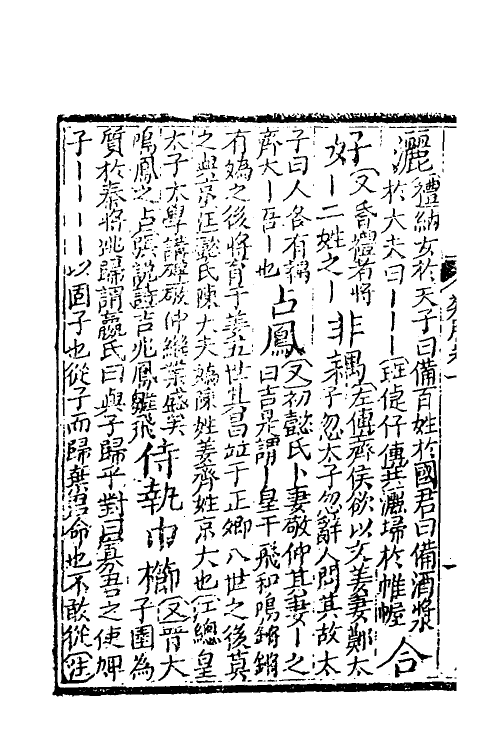 灑禮納女於天子曰備百姓於國君曰備酒漿
於大夫曰｜｜｜班倢伃傳共灑埽於帷幄合
好又昏禮者將
｜二姓之｜
非耦左傳齊侯欲以文姜妻鄭太
子忽太子忽辭人問其故太
子曰人各有耦
齊大｜吾｜也
占鳳又初懿氏卜妻敬仲其妻｜之
曰吉是謂｜皇于飛和鳴鏘鏘
有媯之後將育于姜五世其昌並于正卿八世之後莫
之與京注懿氏陳大夫媯陳姓姜齊姓京大也江總皇
太子太學講碑仲維業盛矣
鳴鳳之占張說詩吉兆鳳雛飛
侍執巾櫛又晉大
子圉為
質於秦將逃歸謂嬴氏曰與子歸乎對曰寡君之使婢
子｜｜｜｜以固子也從子而歸棄君命也不敢從注